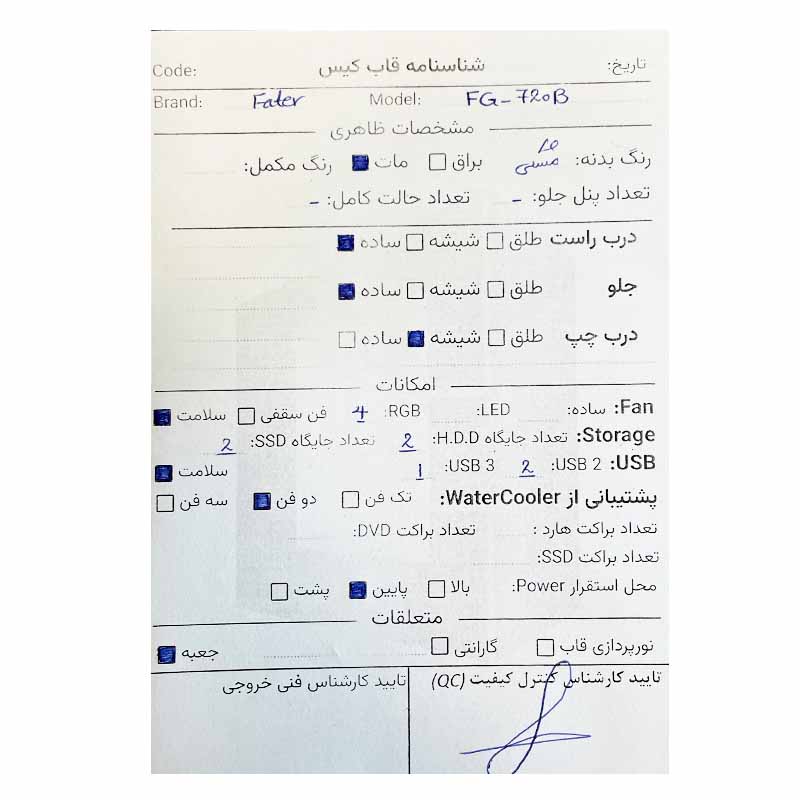 تاریخ: شناسنامه قاب کیس Code:
Brand: Fater Model: FG-720B
مشخصات ظاهری
رنگ بدنه: مشکی براق مات رنگ مکمل:
تعداد پنل جلو: - تعداد حالت کامل: -
درب راست طلق شیشه ساده
جلو طلق شیشه ساده
درب چپ طلق شیشه ساده
امکانات
Fan: ساده: LED: RGB: 4 فن سقفی سلامت
Storage: تعداد جایگاه H.D.D: 2 تعداد جایگاه SSD: 2
USB: USB 2: 2 USB 3: 1 سلامت
پشتیبانی از WaterCooler: تک فن دو فن سه فن
تعداد براکت هارد : تعداد براکت DVD:
تعداد براکت SSD:
محل استقرار Power: بالا پایین پشت
متعلقات
نورپردازی قاب گارانتی جعبه
تایید کارشناس کنترل کیفیت (QC) تایید کارشناس فنی خروجی